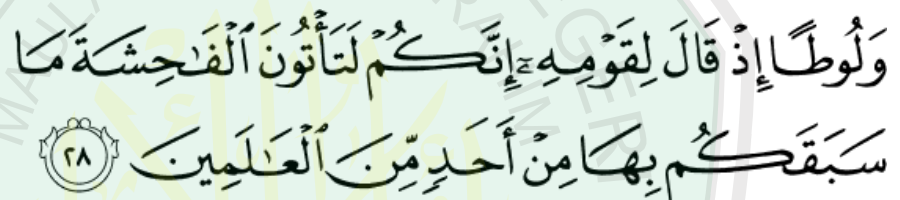 وَلُوطًا إِذْ قَالَ لِقَوْمِهِۦٓ إِنَّكُمْ لَتَأْتُونَ ٱلْفَٰحِشَةَ مَا
سَبَقَكُم بِهَا مِنْ أَحَدٍ مِّنَ ٱلْعَٰلَمِينَ ٢٨